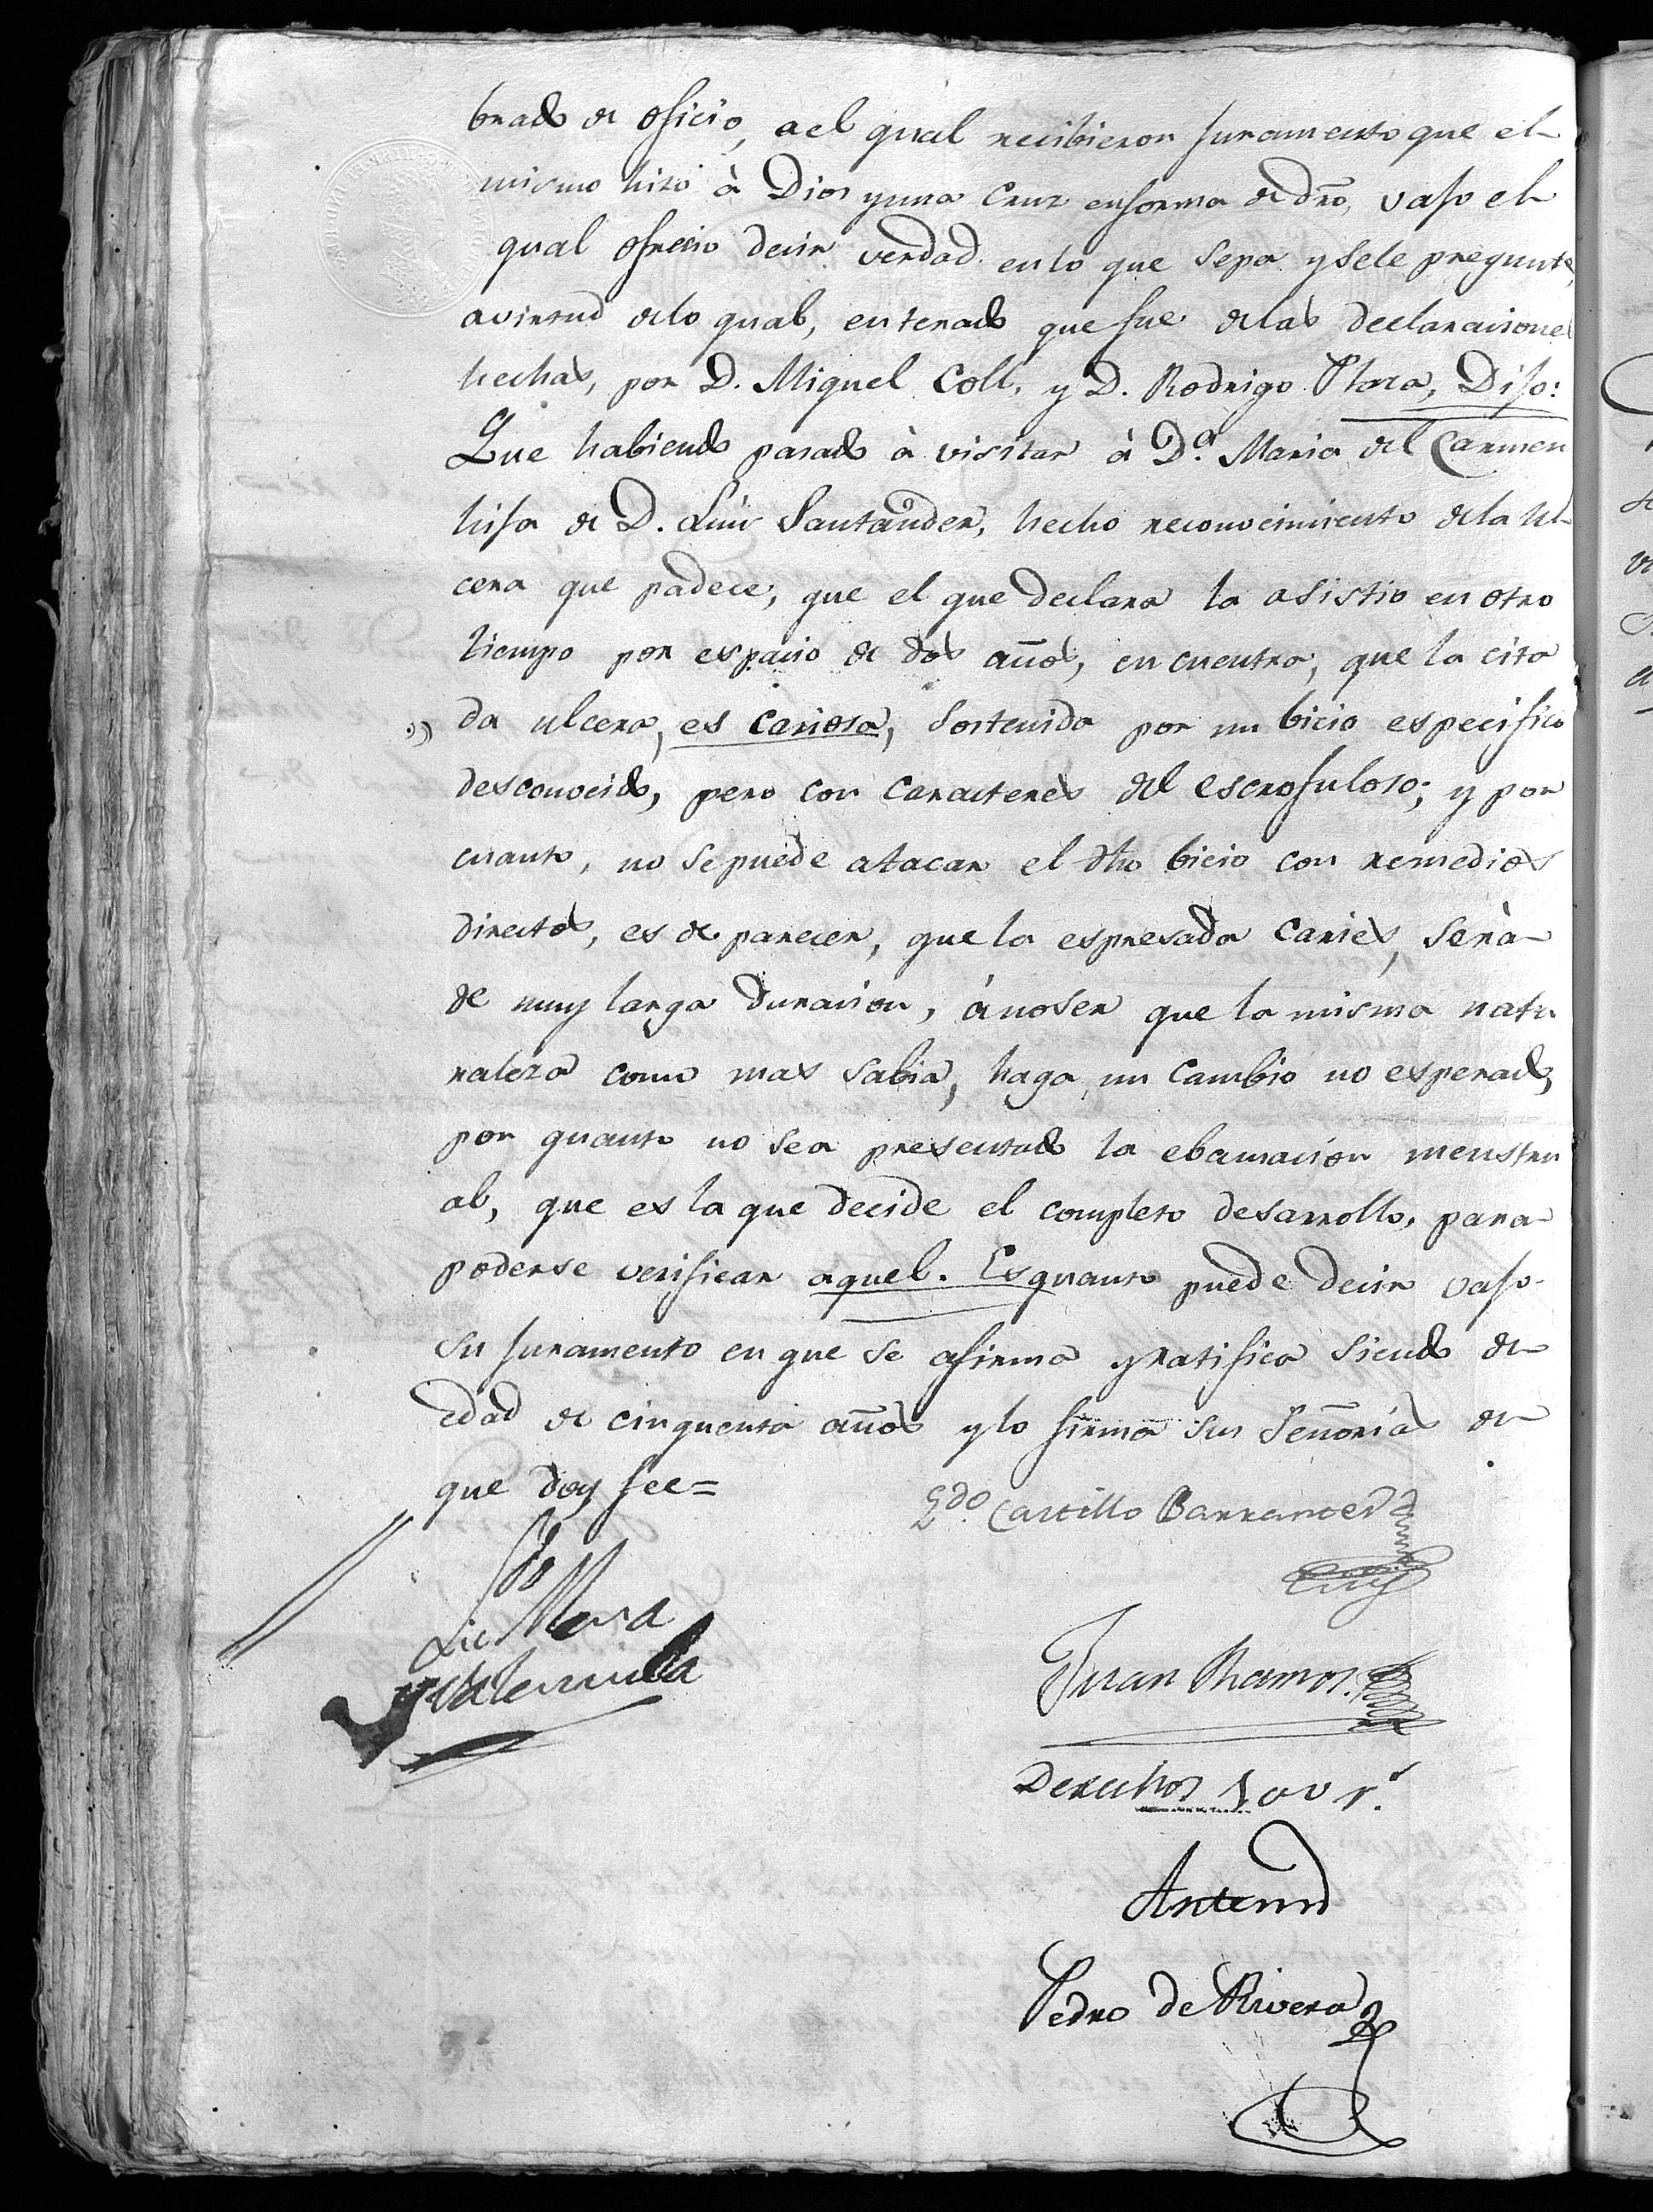 brado de oficio, ael qual recibieron juramento que el
mismo hizo à Dios y una Cruz en forma de dro, vajo el
qual ofrecio decir verdad en lo que sepa y sele pregunte,
avirtud delo qual, enterado que fue delas declaraciones
hechas, por D. Miguel Coll, y D. Rodrigo Plaza, Dijo:
Que habiendo pasado à visitar à Dª. Maria del Carmen
hija de D. Luis Santander, hecho reconocimiento dela ul-
cera que padece, que el que declara la asistio en otro
tiempo por espacio de dos años, encuentra, que la cita
da ulcera, es cariosa, sostenida por un bicio especifico
desconocido, pero con caracteres del escrofuloso; y por
cuanto, no se puede atacar el dho bicio con remedios
directos, es de parecer, que la espresada caries, serà
de muy larga duracion, á noser que la misma natu
raleza como mas sabia, haga un cambio no esperado,
por quanto no sea presentado la ebacuacion menstru
al, que es la que decide el completo desarrollo, para
poderse verificar aquel. Es quanto puede decir vajo
su juramento en que se afirma y ratifica siendo de
edad de cinquenta años y lo firma sus Señorias de
que doy fee=
Ldo. Castillo Barrantes
Lic. Mora
y Valenzuela
Juan Ramos.
Derechos 100 rs.
Antemi
Pedro de Rivera